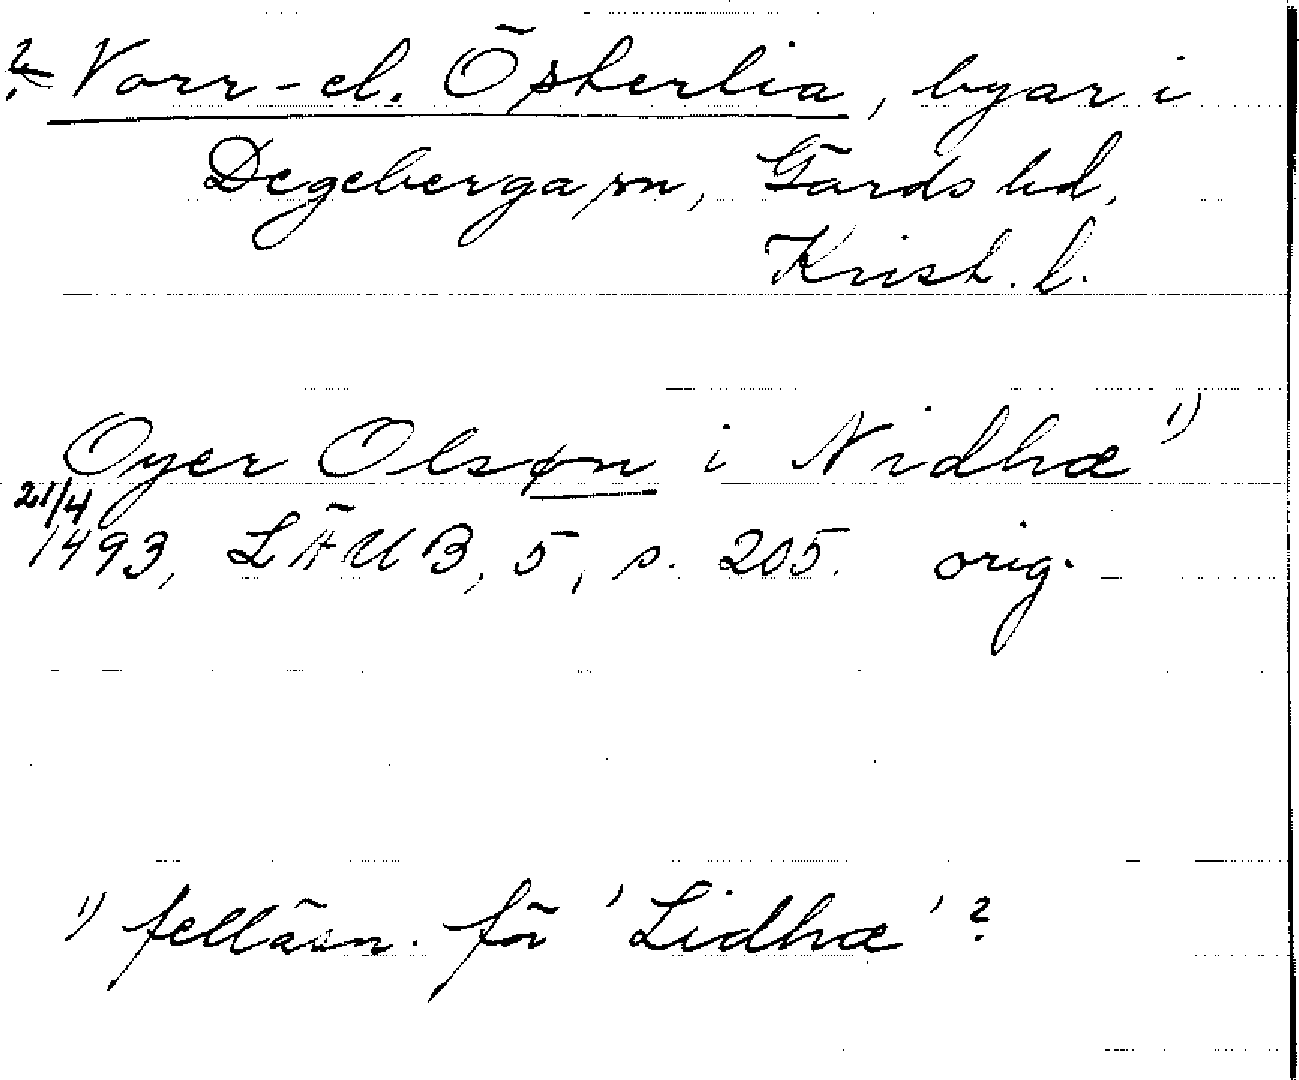 ? Norr- el. Österlia, byar i
Degeberga sn, Gärds hd,
Krist. l.
Oyer Olsøn i Nidhæ 1)
21/4
1493, LÄUB, 5, s. 205. orig.
1) felläsn. för 'Lidhæ'?